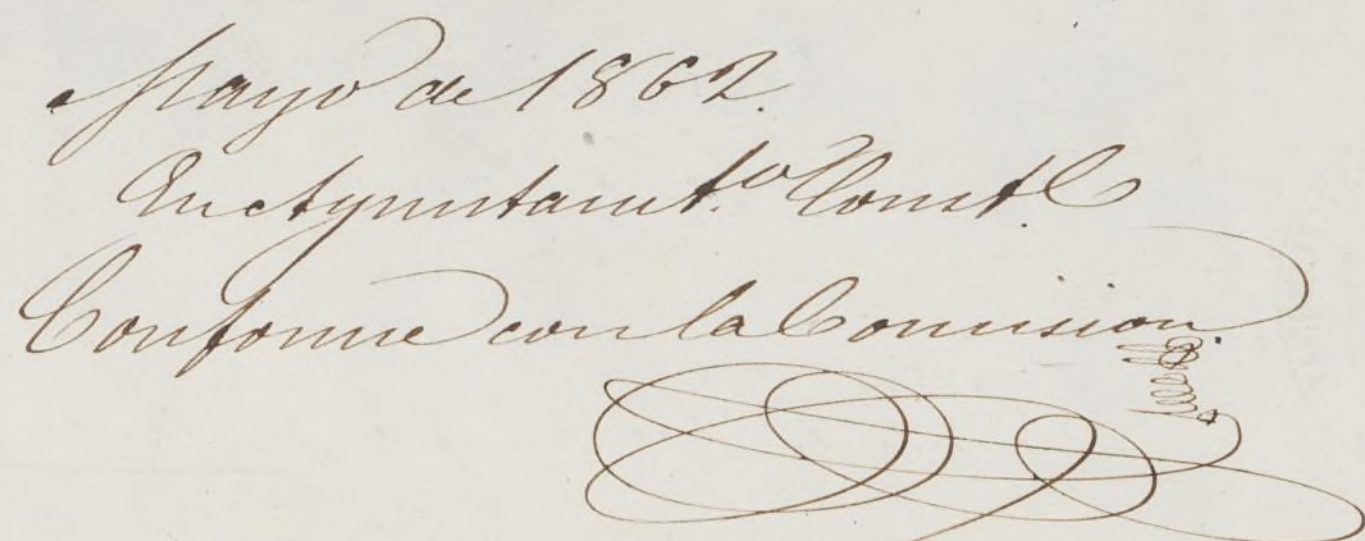 Mayo de 1862.
En Ayuntamt.to Const.l
Conforme con la Comision.